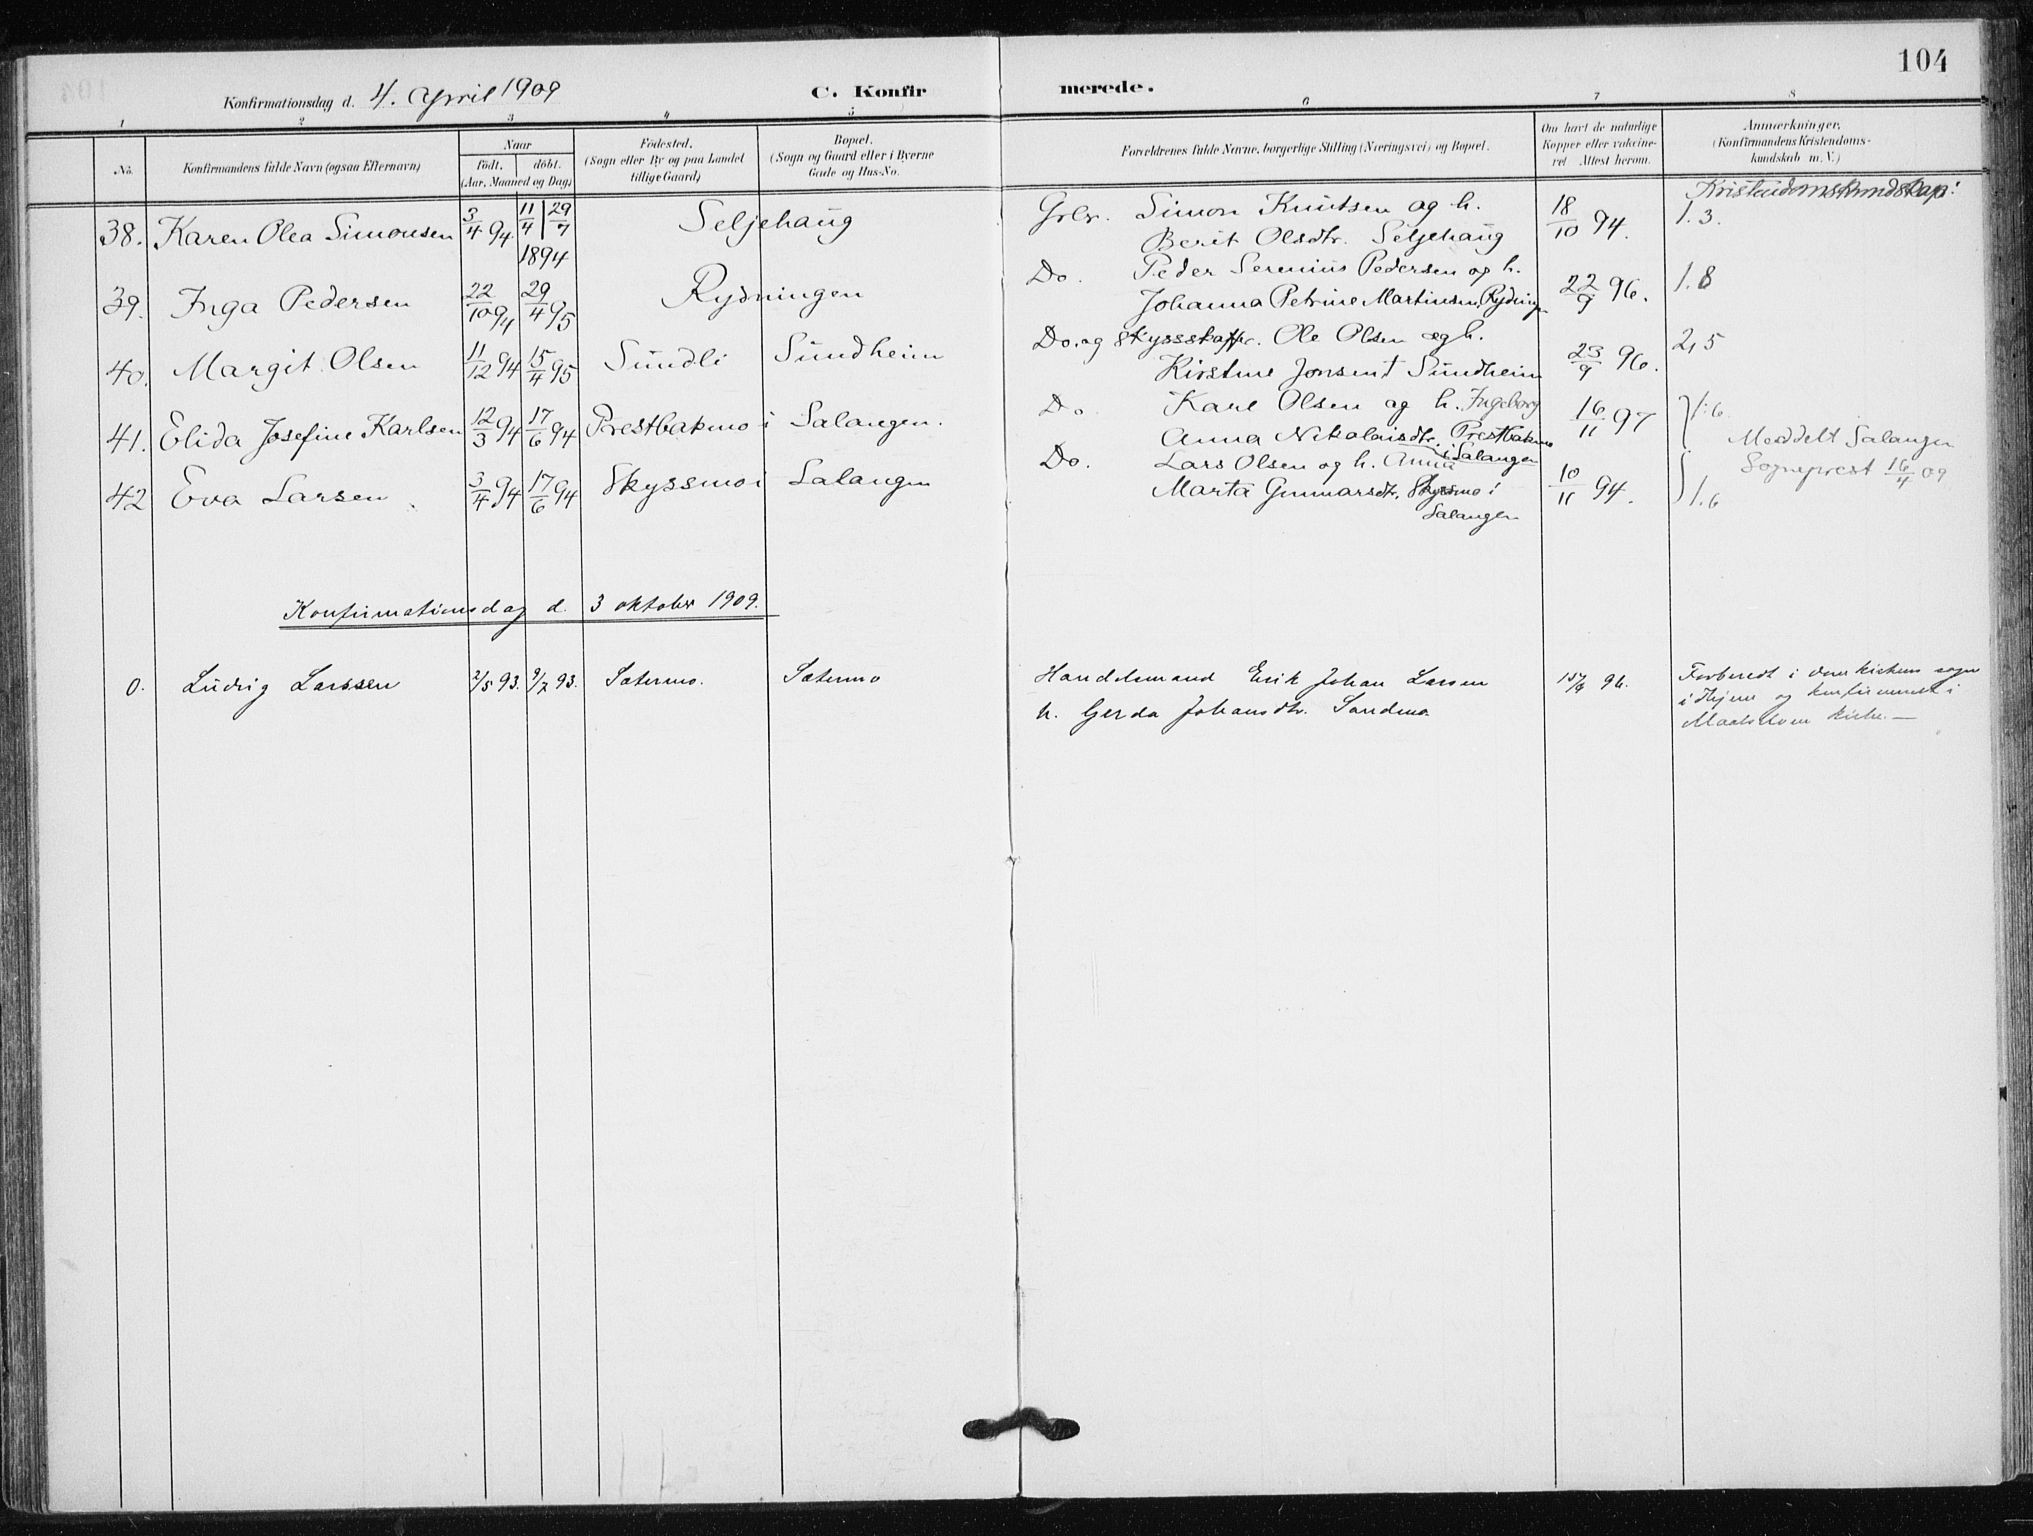 104
Konfirmationsdag d. 4. April 1909
C. Konfirmerede.
1 2 3 4 5 6 7 8
No.
Konfirmandens fulde Navn (ogsaa Efternavn)
Naar
födt. döbt.
(Aar, Maaned og Dag)
Födested.
(Sogn eller By og paa Landet
tillige Gaard)
Bopæl.
(Sogn og Gaard eller i Byerne
Gade og Hus-No.
Forældrenes fulde Navne, borgerlige Stilling (Næringsvei) og Bopæl.
Om havt de naturlige
Kopper eller vakcine-
ret Attest herom.
Anmærkninger,
(Konfirmandens Kristendoms-
kundskab m. V.)
Kristendomskundskap:
38. Karen Olea Simonsen 3/4 94. 11/4 | 29/7 1894 Seljehaug Grbr. Simon Knutsen og h. 18/10 94. 1.3.
Berit Olsdtr. Seljehaug
39. Inga Pedersen 22/10 94 29/4 95 Rydningen Do. Peder Serenius Pedersen og h. 22/9 96. 1.8
Johanna Petrine Martinsen, Rydningen
40. Margit Olsen 11/12 94 15/4 95 Sundli Sundheim Do. og Skyssskaffer. Ole Olsen og h. 23/9 96. 2,5
Kirstine Sundheim
41. Elida Josefine Karlsen 12/3 94 17/6 94 Prestbakmo i Salangen. Do. Karl Olsen og h. Ingeborg 16/11 97 1.6
Anna Nikolaisdtr. Prestbakmo
i Salangen
Meddelt Salangen
Sogneprest 16/4 09
42 Eva Larsen 3/4 94 17/6 94 Skyssmo i Salangen Do. Lars Olsen og h. Anna 10/11 94. 1.6
Marta Gunnarsdtr. Skyssmo i
Salangen
Konfirmationsdag d. 3 oktober 1909.
0. Ludvig Larssen 2/5 93. 9/7 93. Sætermo. Sætermo Handelsmand Erik Johan Larsen 96. Forberedt i kirkens sogn
h. Gerda Johansdtr. Sandmo. og i
kirke. —